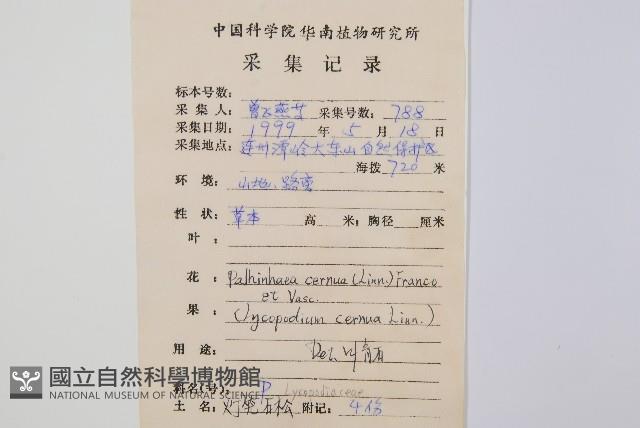 中国科学院华南植物研究所
采集记录
标本号数:
采集人: 曾飞燕 采集号数: 788
采集日期: 1999 年 5 月 18 日
采集地点: 连州潭岭大东山自然保护区
海拨 720 米
环境: 山地、路旁
性状: 草本 高 米; 胸径 厘米
叶:
花: Palhinhaea cernua (Linn.) Franco
et Vasc.
果: (Lycopodium cernua Linn.)
用途:
Det.
國立自然科學博物館
NATIONAL MUSEUM OF NATURAL SCIENCE
科名(号): P Lycopodiaceae
土名: 灯笼石松 附记: 4份